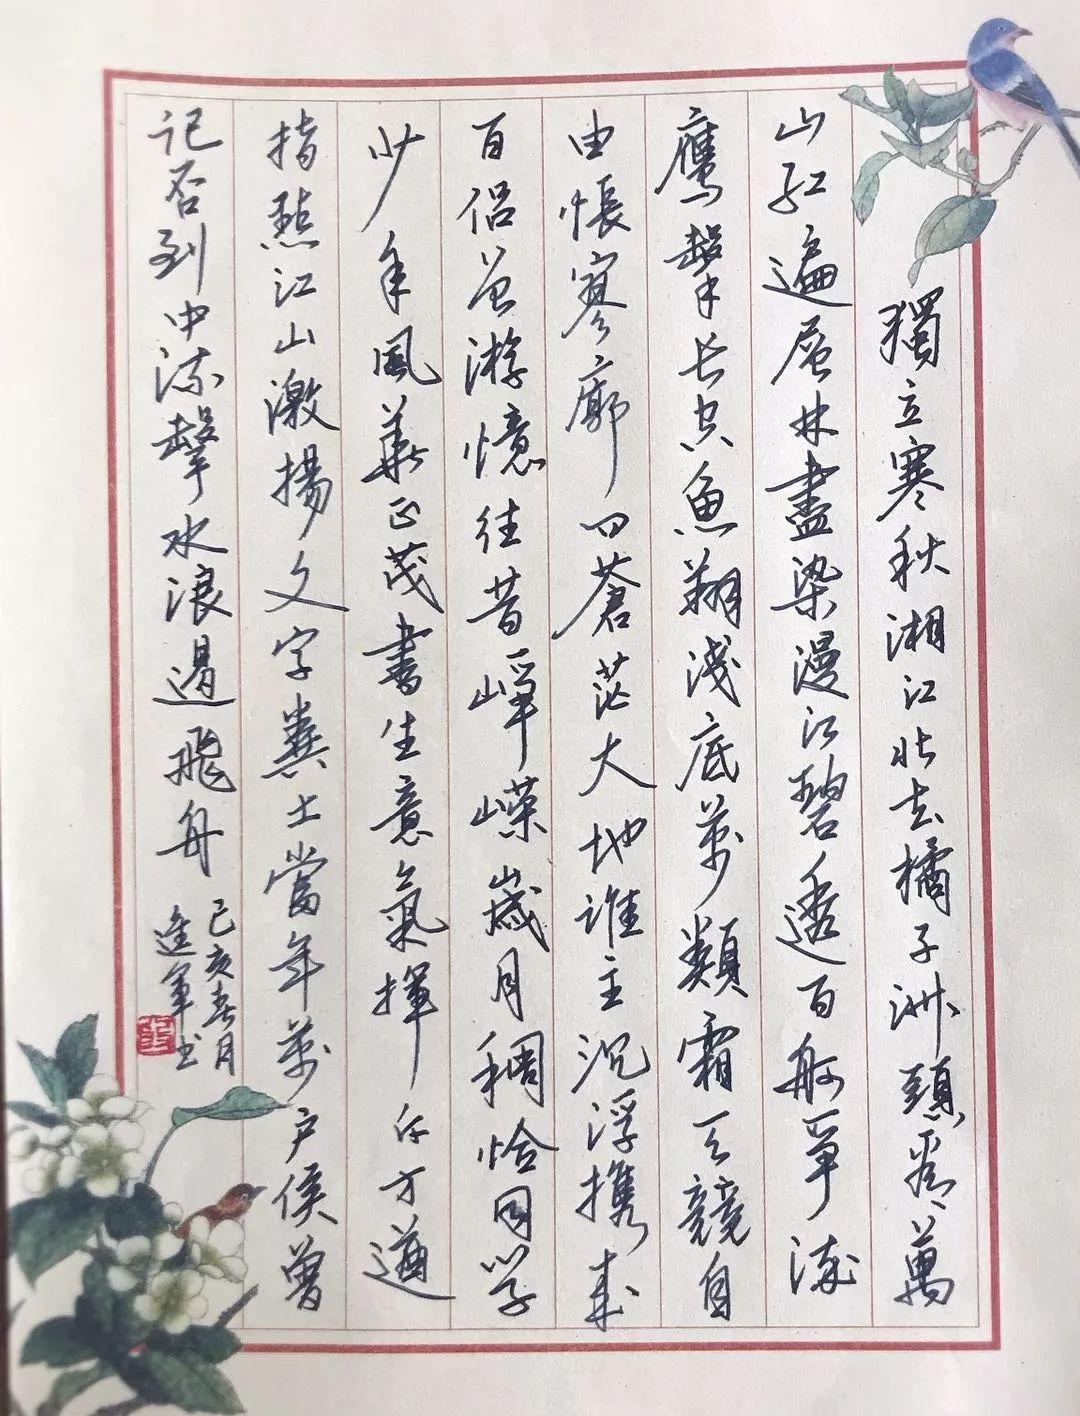 獨立寒秋湘江北去橘子洲頭看萬
山红遍层林盡染漫江碧透百舸爭流
鷹擊长空魚翔淺底萬類霜天競自
由悵寥廓问蒼茫大地谁主沉浮携来
百侣曾游憶往昔崢嶸歲月稠恰同学
少年風華正茂書生意氣揮斥方遒
指點江山激揚文字糞土當年萬户侯曾
记否到中流擊水浪遏飛舟
己亥春月
進軍书